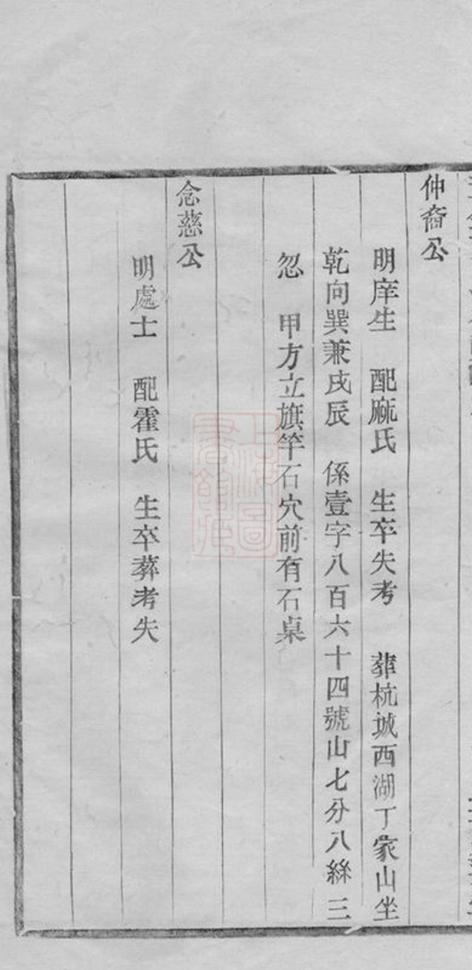 仲裔公
明庠生 配麻氏 生卒失考 葬杭城西湖丁家山坐
乾向巽兼戌辰 係壹字八百六十四號山七分八絲三
忽 甲方立旗竿石穴前有石桌
念慈公
明處士 配霍氏 生卒葬考失
上海圖書館藏